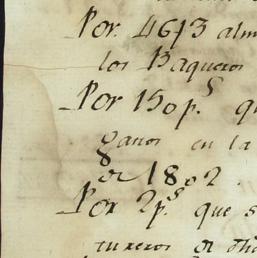 Por. 4613 alm
los Baqueros
Por 150 p.s q
ganos en la
8 de 1802.
Por 2 p.s que s